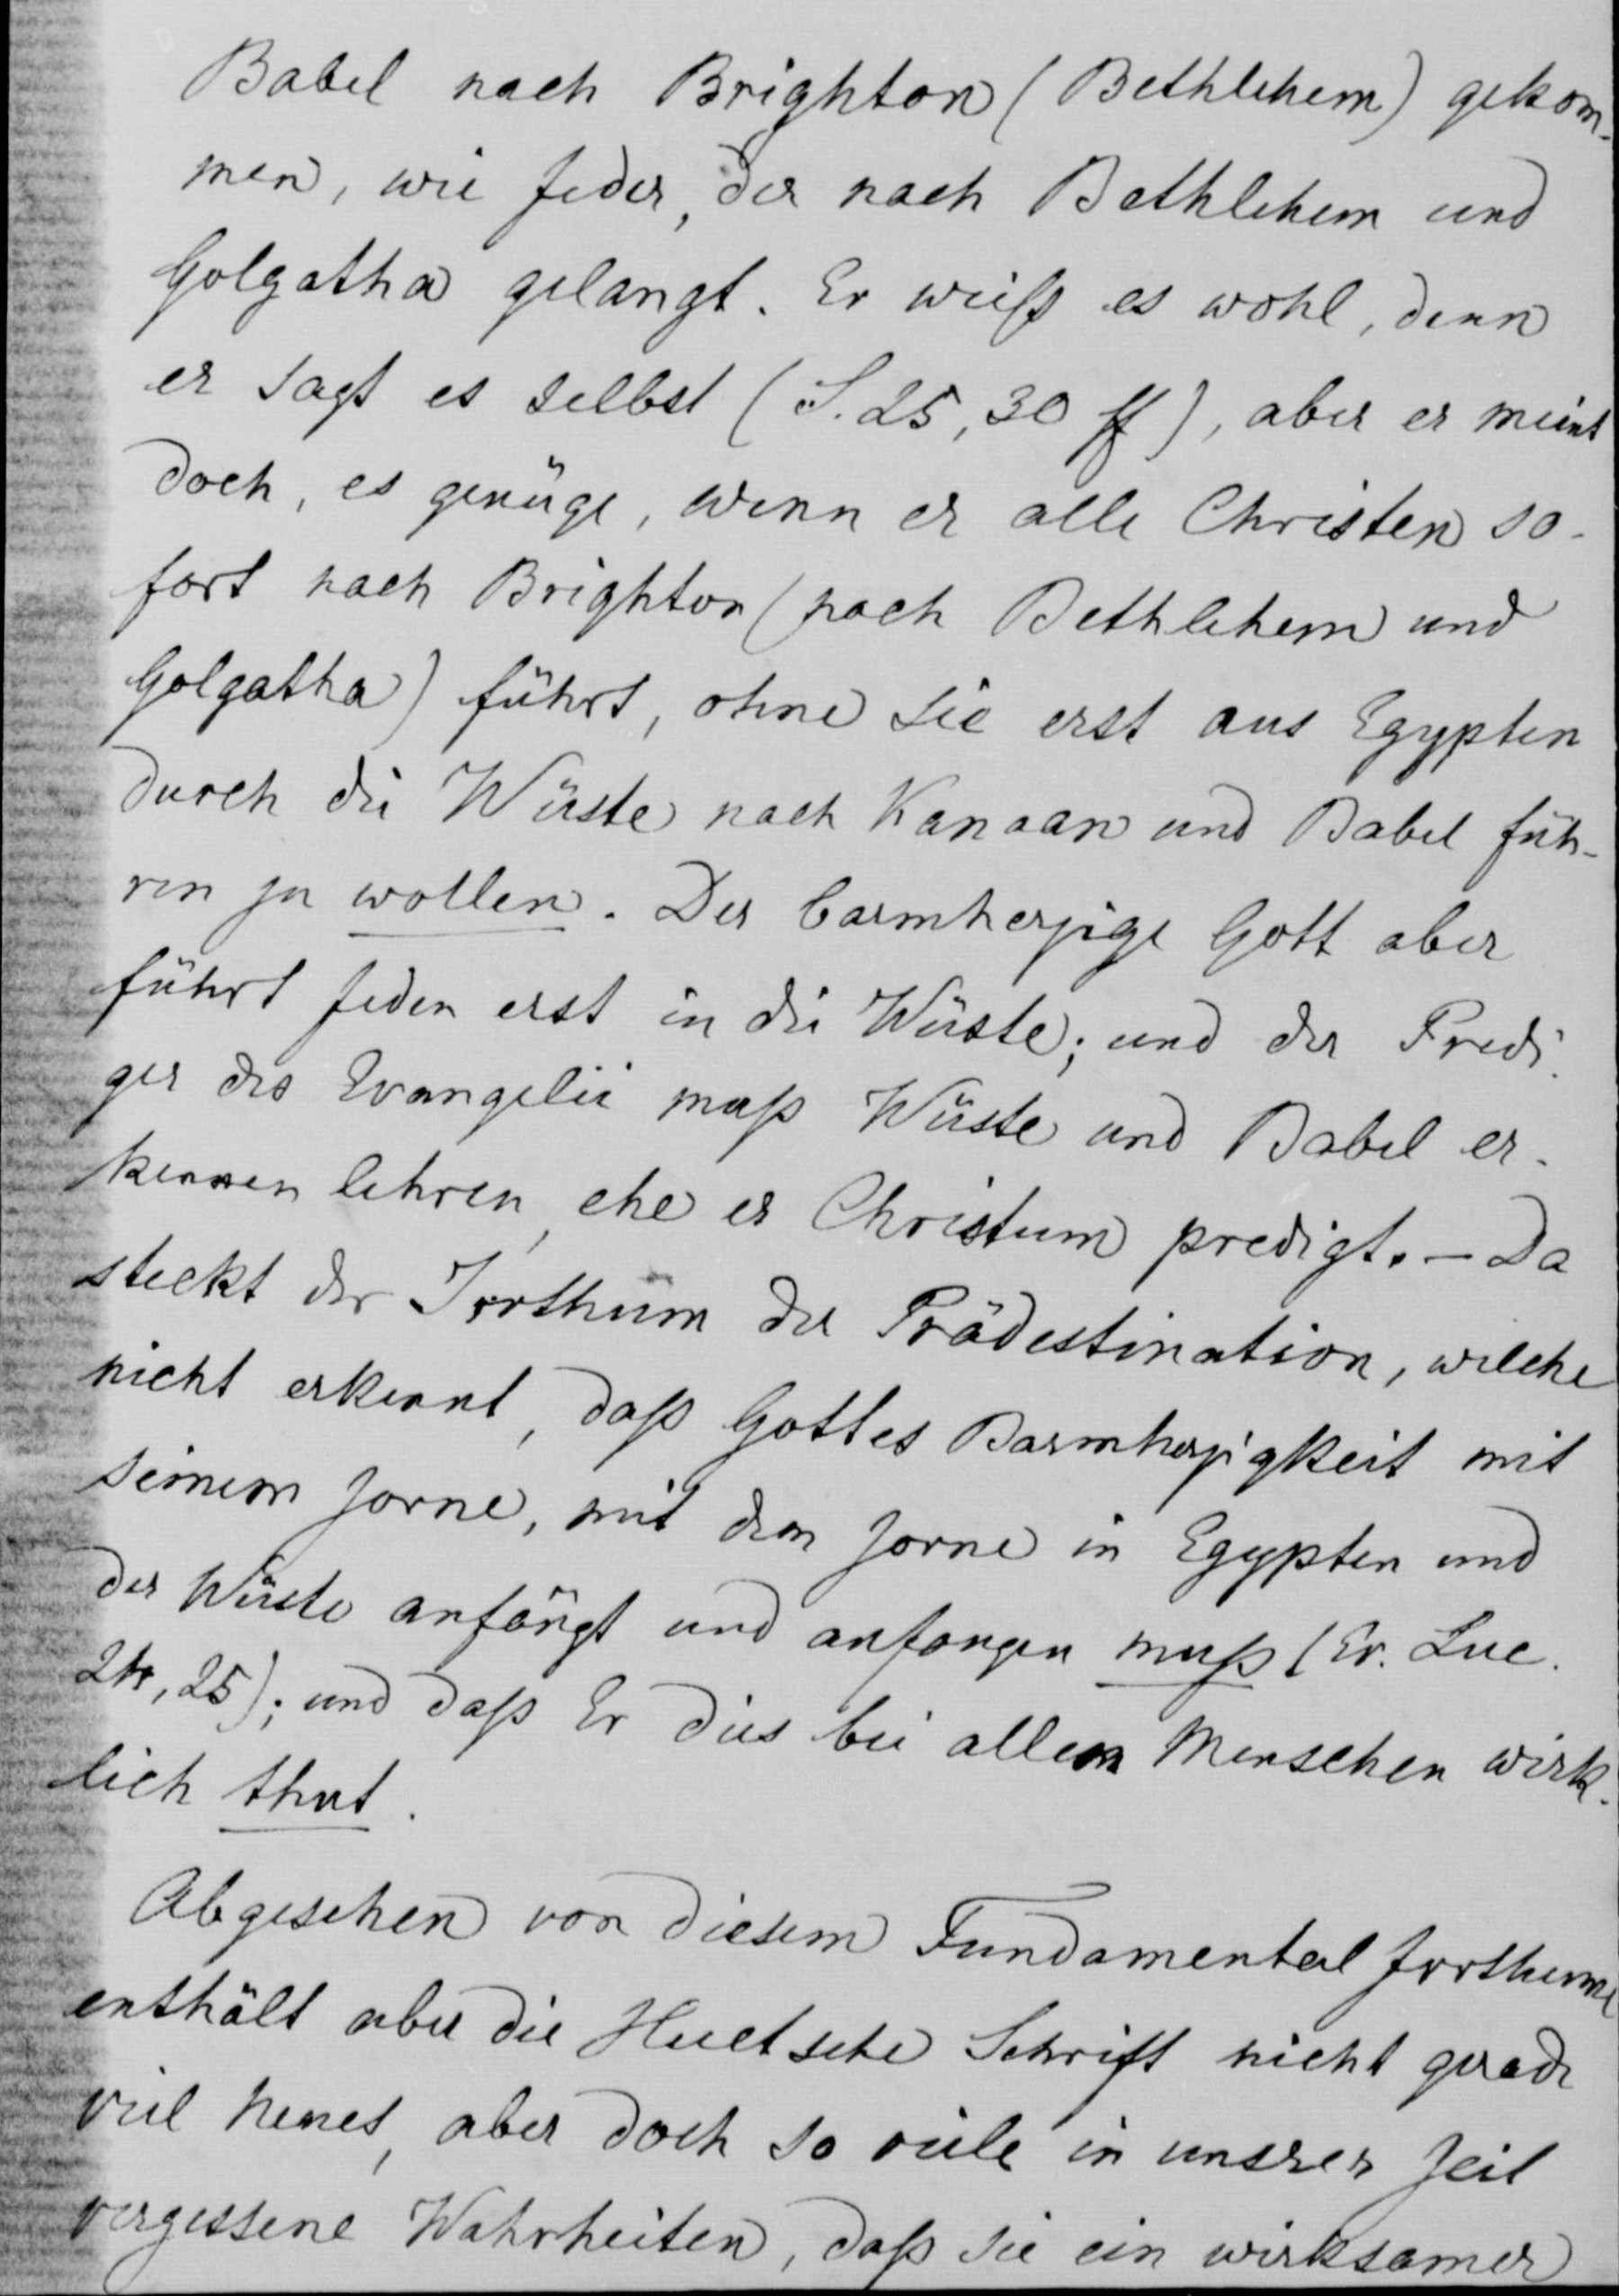 Babel nach Brighton (Bethlehem) gekom-
men, wie Jeder, der nach Bethlehem und
Golgatha gelangt. Er weiß es wohl, denn
er sagt es selbst (S. 25, 30 ff), aber er meint
doch, es genüge, wenn er alle Christen so-
fort nach Brighton (nach Bethlehem und
Golgatha) führt, ohne sie erst aus Egypten
durch die Wüste nach Kanaan und Babel füh-
ren zu wollen. Der barmherzige Gott aber
führt Jeden erst in die Wüste; und der Predi-
ger des Evangelii muß Wüste und Babel er-
kennen lehren, ehe er Christum predigt. – Da
steckt der Irrthum der Prädestination, welche
nicht erkennt, daß Gottes Barmherzigkeit mit
seinem Zorne, mit dem Zorne in Egypten und
der Wüste anfängt und anfangen muß (Ev. Luc.
24, 25); und daß Er dies bei allen Menschen wirk-
lich thut.
Abgesehen von diesem Fundamental Irrthume
enthält aber die Huetsche Schrift nicht gerade
viel Neues, aber doch so viele in unsrer Zeit
vergessene Wahrheiten, daß sie ein wirksamer